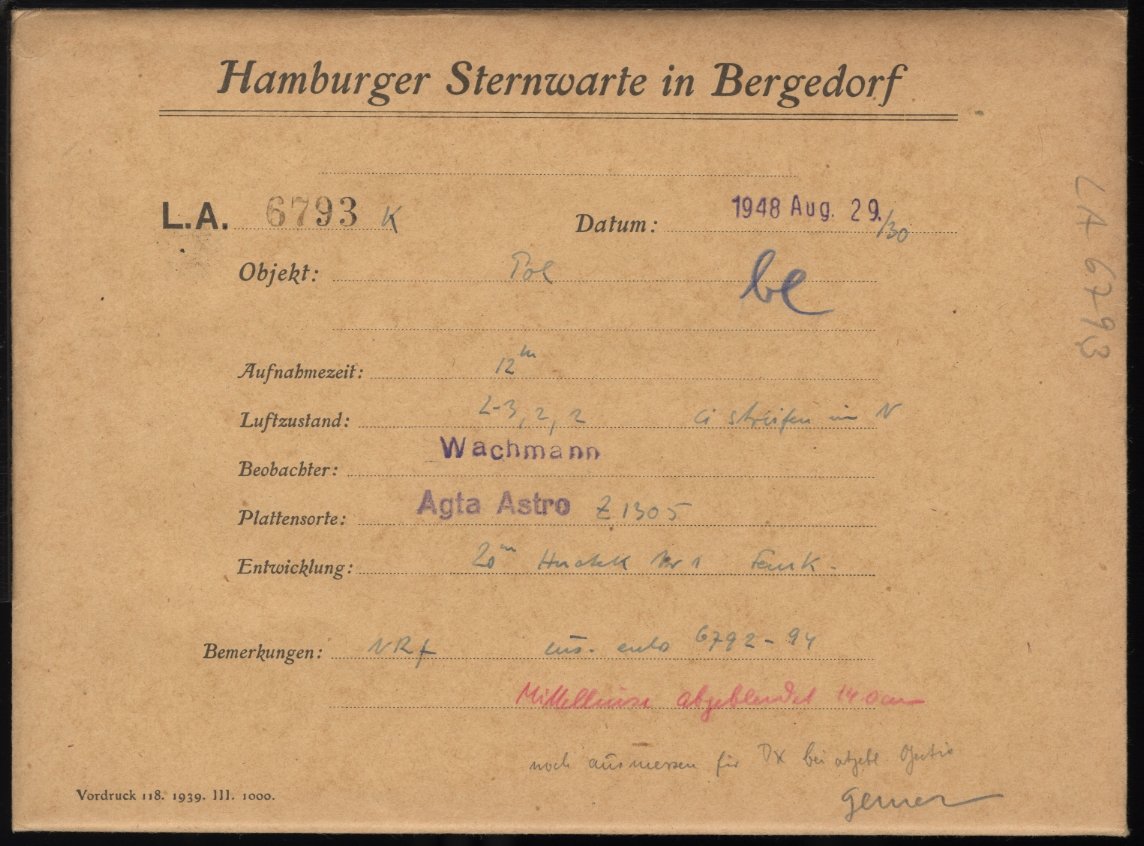 Hamburger Sternwarte in Bergedorf
L.A. 6793 K Datum: 1948 Aug. 29./30
Objekt: Pol be
Aufnahmezeit: 12m
Luftzustand: 2-3, 2, 2 Ci streifen im N
Beobachter: Wachmann
Plattensorte: Agfa Astro Z 1305
Entwicklung: 20m Nr 1
Bemerkungen: 6792-94
Mittellinse abgeblendet 14.0cm
noch ausmessen für bei
Vordruck 118. 1939. III. 1000.
LA 6793